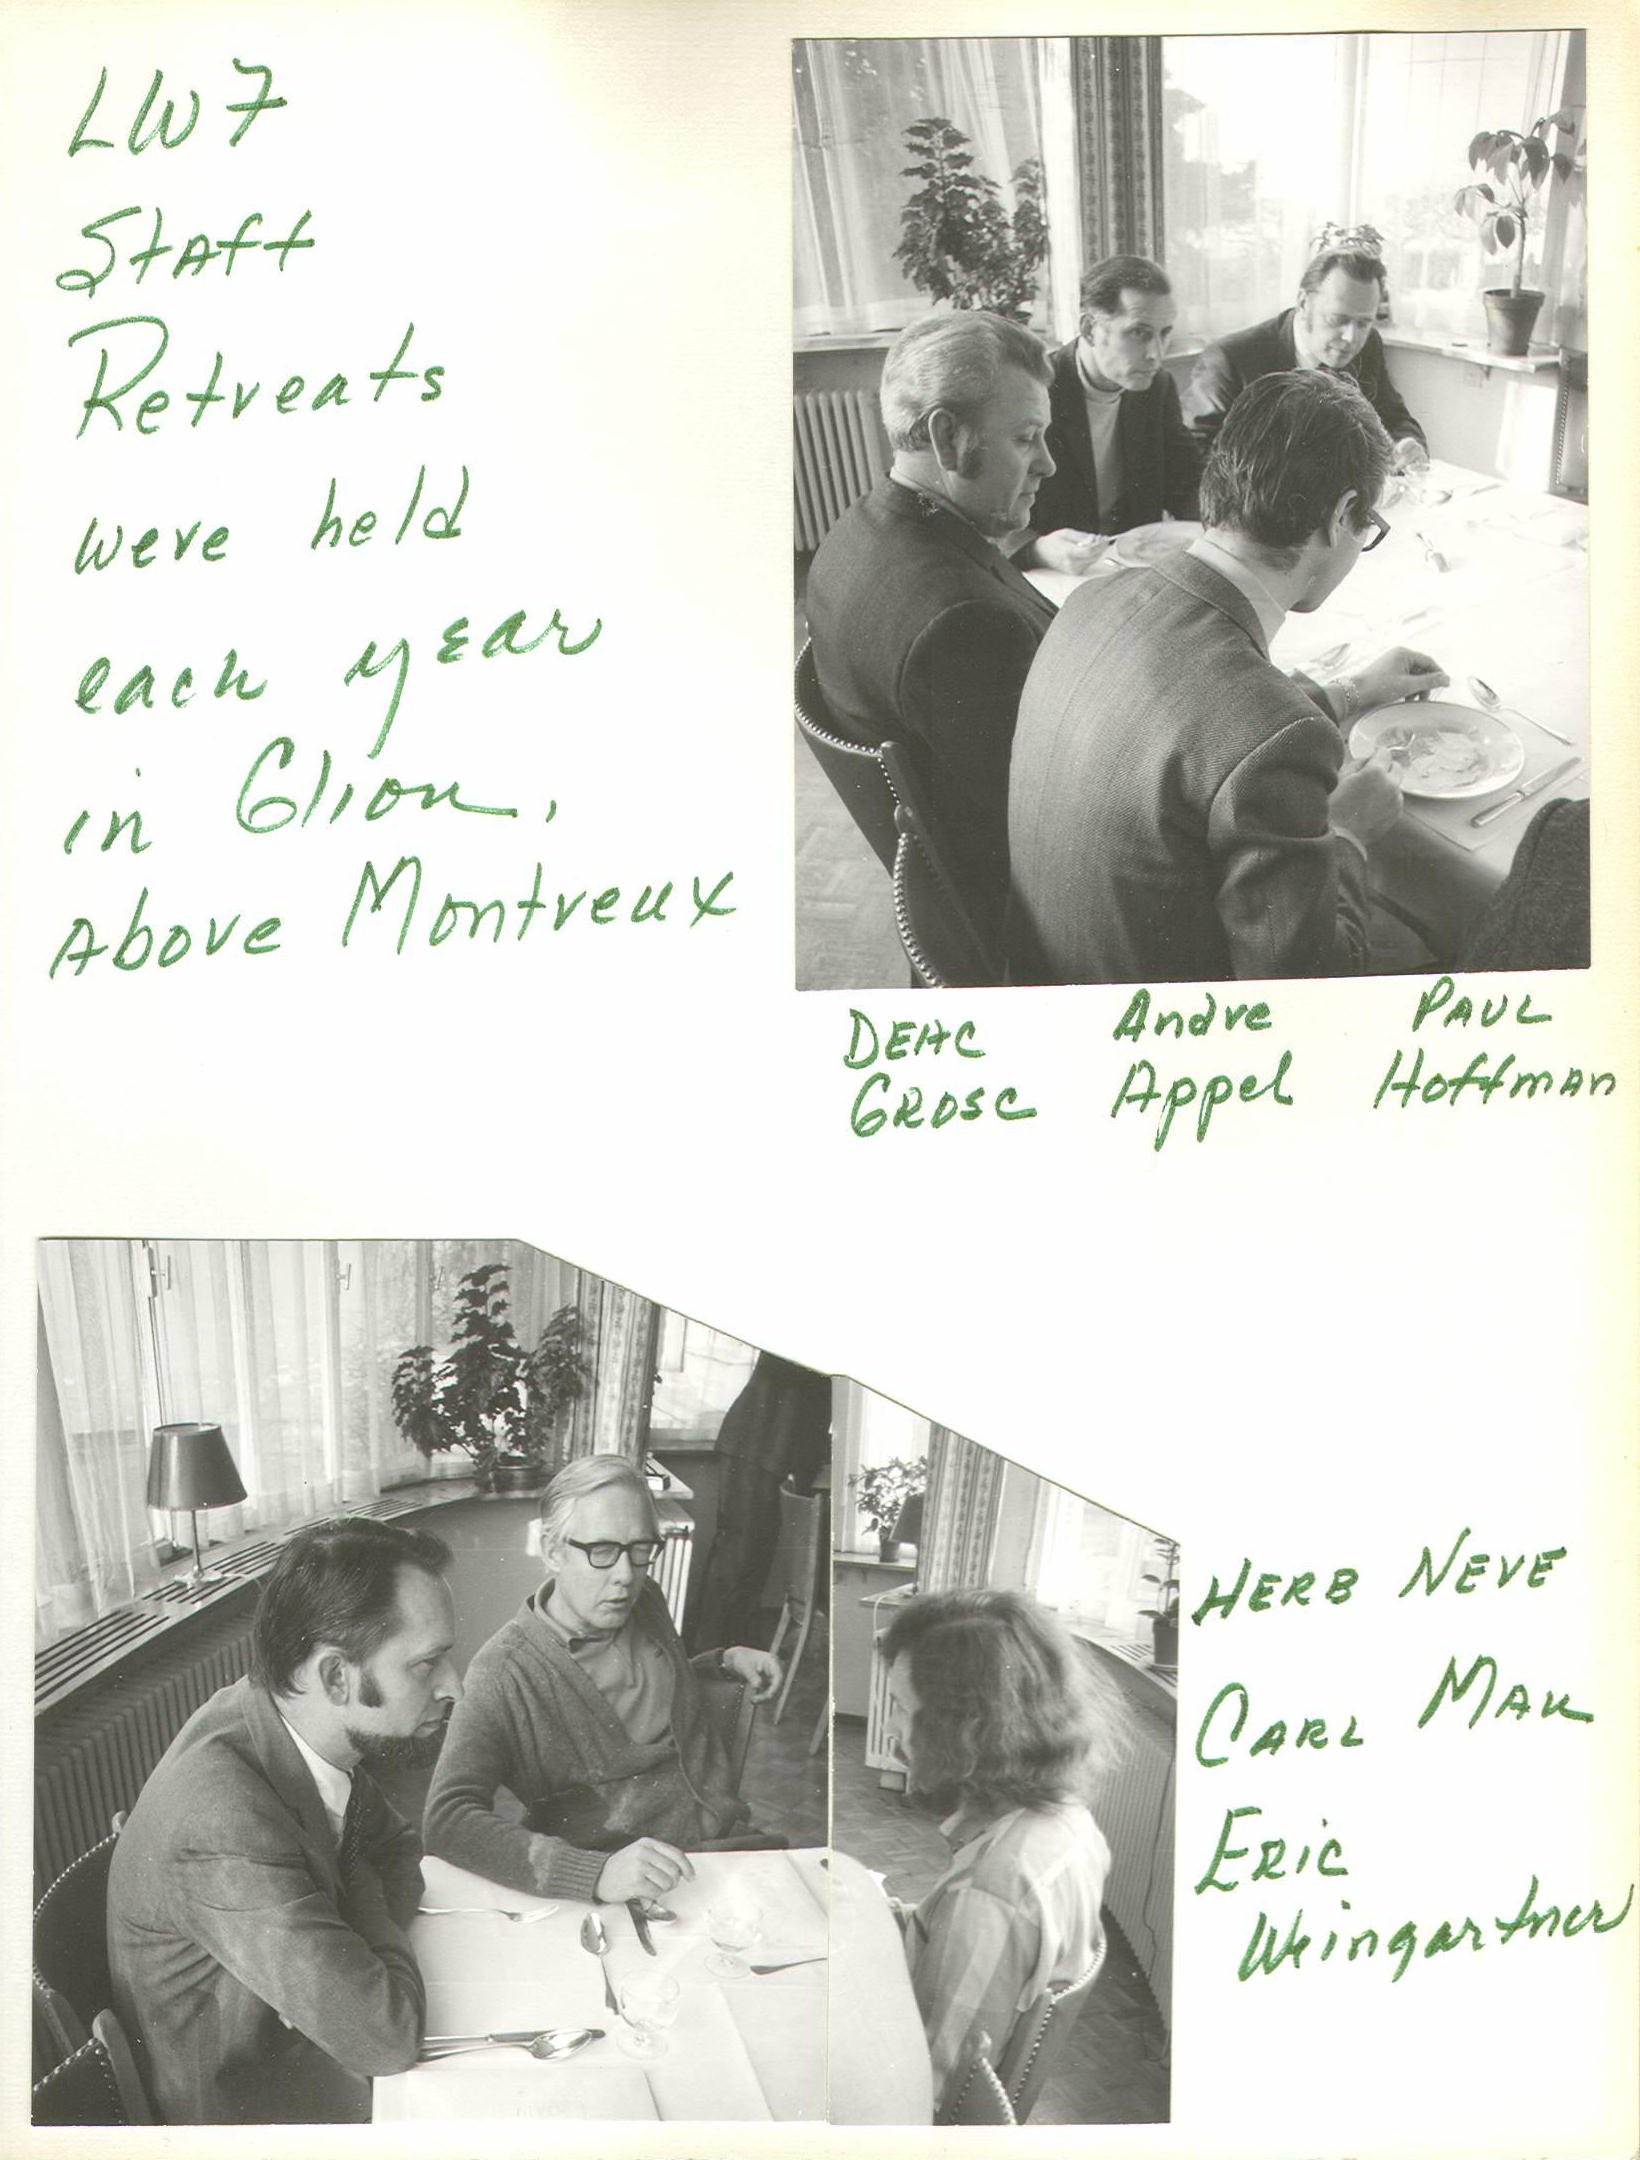 LWF
Staff
Retreats
were held
each year
in Glion,
Above Montreux
DEAC Andre PAUL
GROSC Appel Hoffman
HERB NEVE
CARL MAU
ERIC
Weingartner